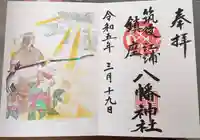 奉拝
筑後江浦
鎮座
八幡神社
令和五年三月十九日